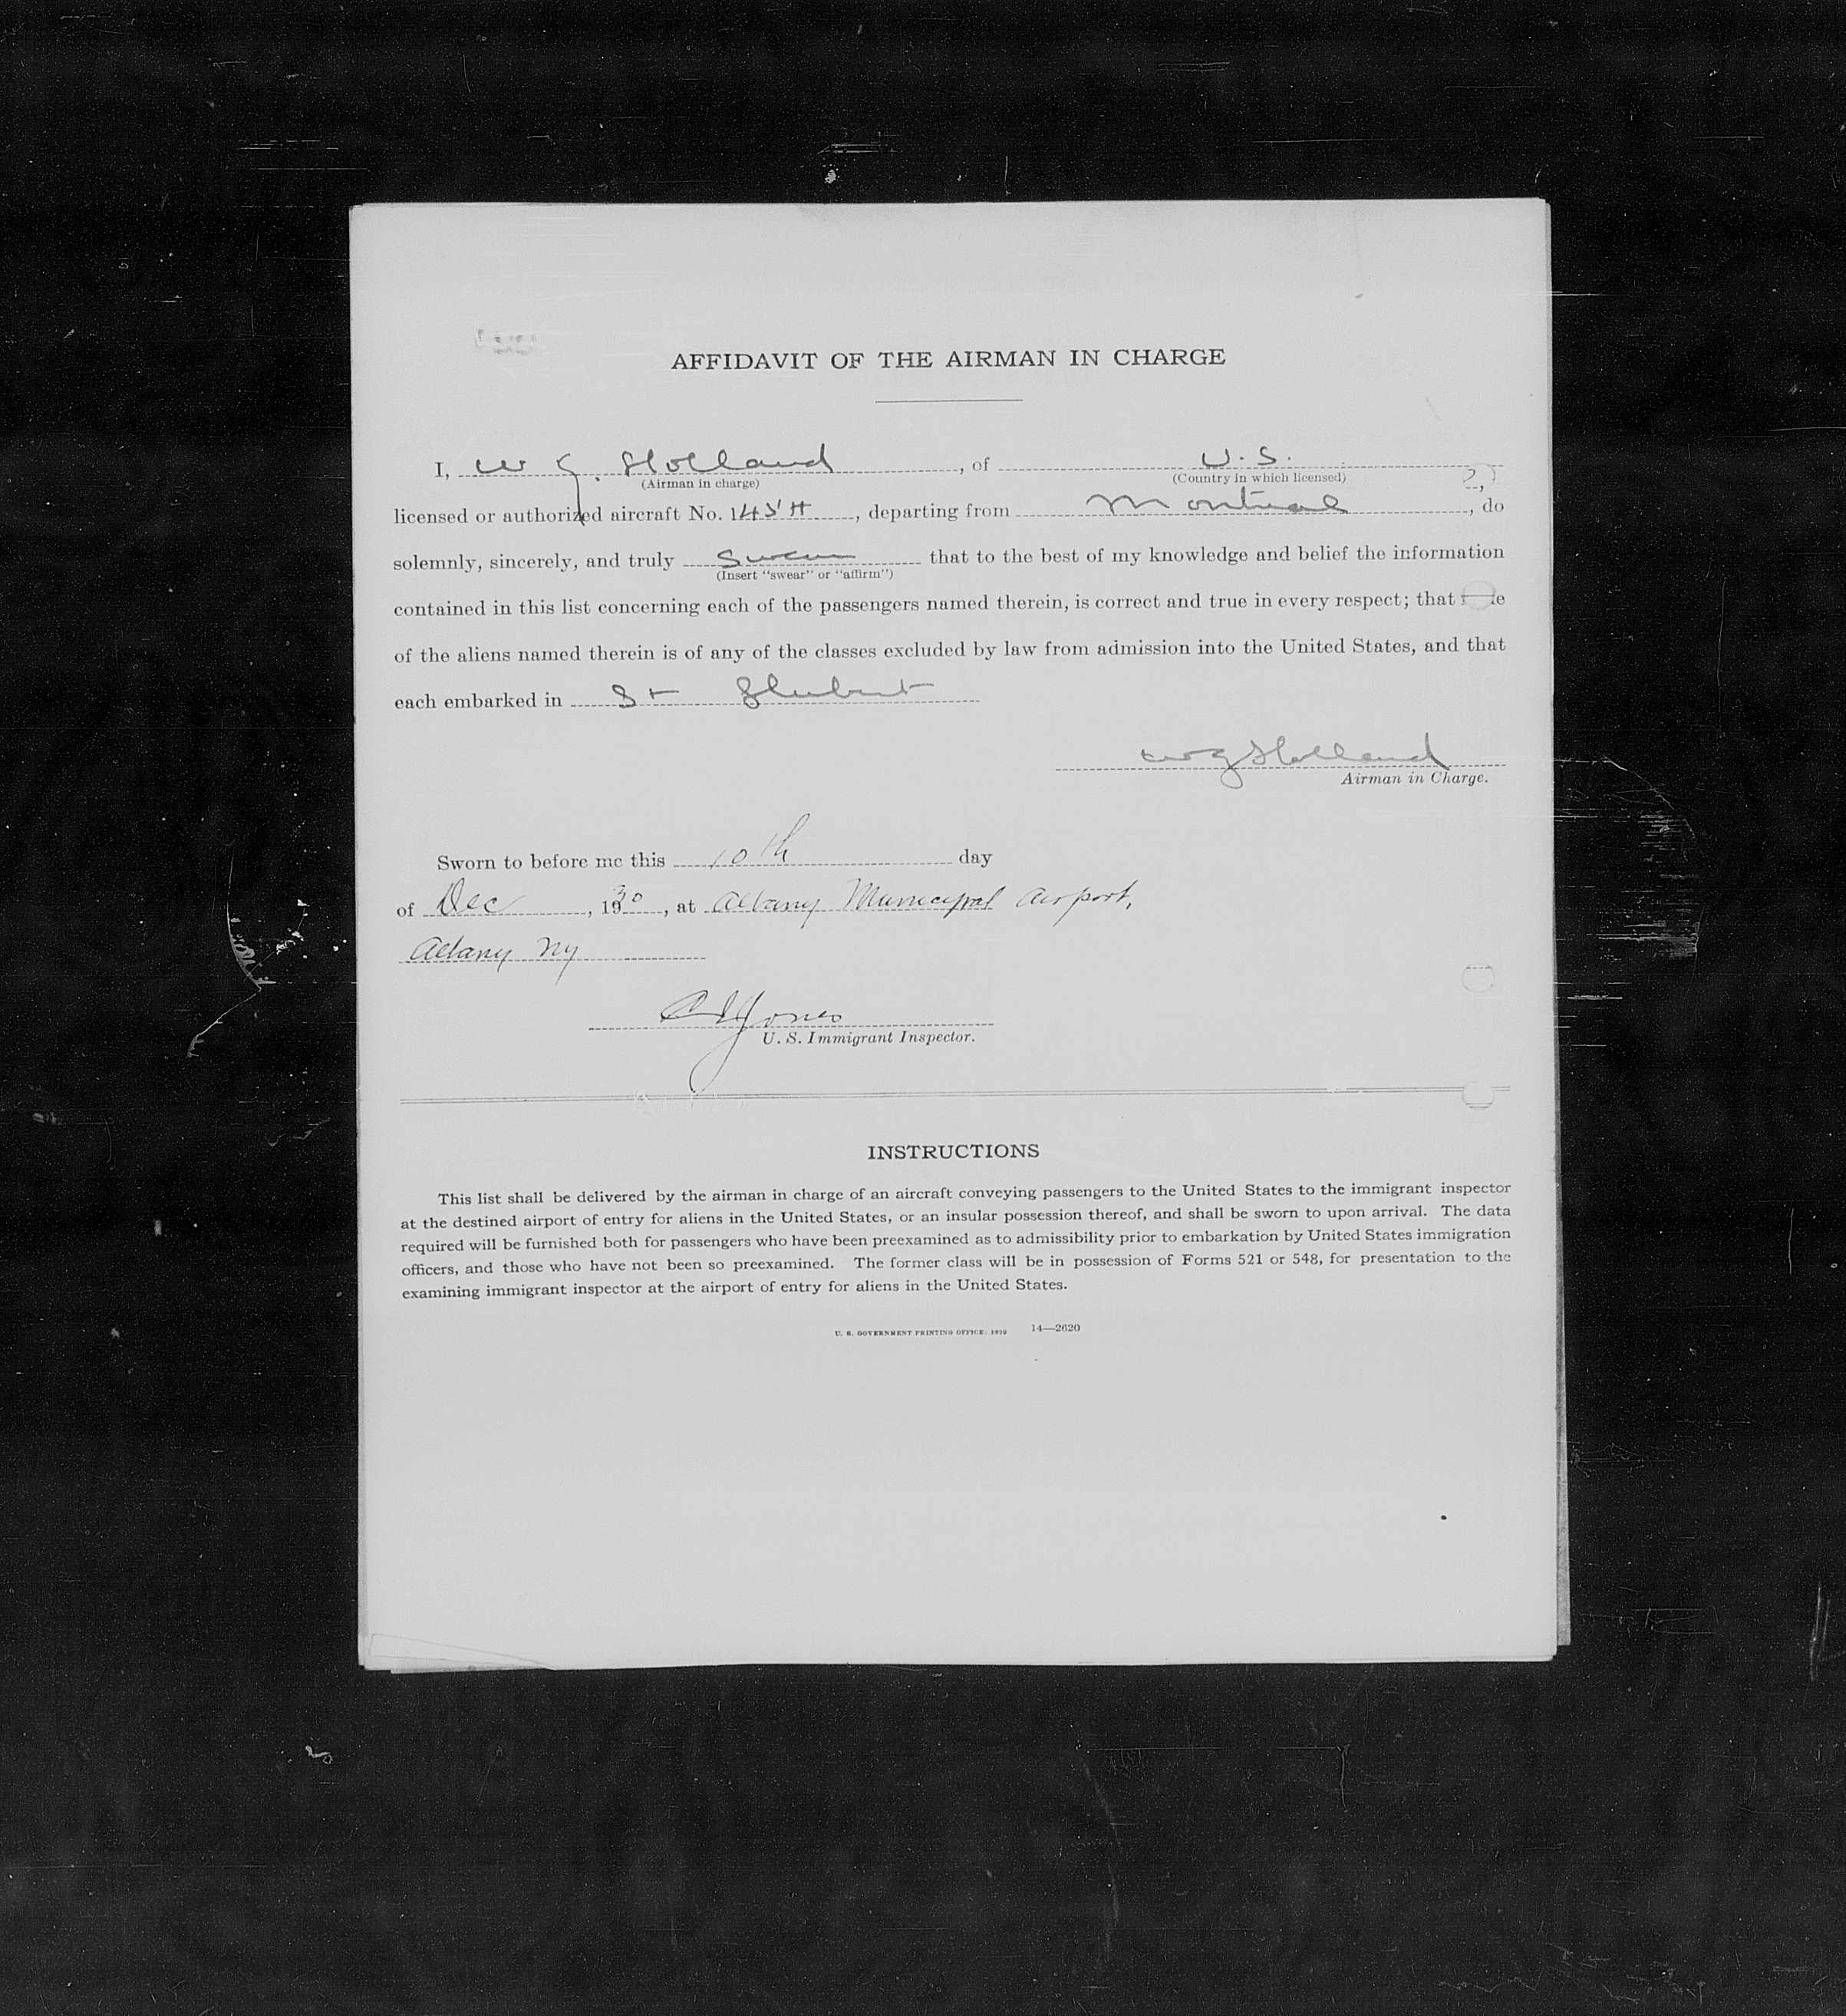 AFFIDAVIT OF THE AIRMAN IN CHARGE
I, W J. Holland, of U.S.
(Airman in charge) (Country in which licensed)
licensed or authorized aircraft No. 145H, departing from Montreal, do
solemnly, sincerely, and truly swear that to the best of my knowledge and belief the information
(Insert "swear" or "affirm")
contained in this list concerning each of the passengers named therein, is correct and true in every respect; that
of the aliens named therein is of any of the classes excluded by law from admission into the United States, and that
each embarked in St Hubert
WJ Holland
Airman in Charge.
Sworn to before me this 10th day
of Dec, 1930, at Albany Municipal Airport,
Albany NY
Jones
U. S. Immigrant Inspector.
INSTRUCTIONS
This list shall be delivered by the airman in charge of an aircraft conveying passengers to the United States to the immigrant inspector
at the destined airport of entry for aliens in the United States, or an insular possession thereof, and shall be sworn to upon arrival. The data
required will be furnished both for passengers who have been preexamined as to admissibility prior to embarkation by United States immigration
officers, and those who have not been so preexamined. The former class will be in possession of Forms 521 or 548, for presentation to the
examining immigrant inspector at the airport of entry for aliens in the United States.
U. S. GOVERNMENT PRINTING OFFICE: 1929 14—2620